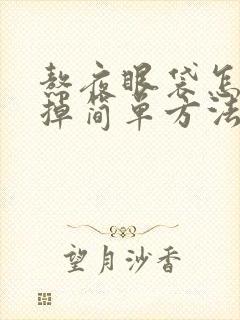 熬夜眼袋怎
掉简单方法
望月沙香